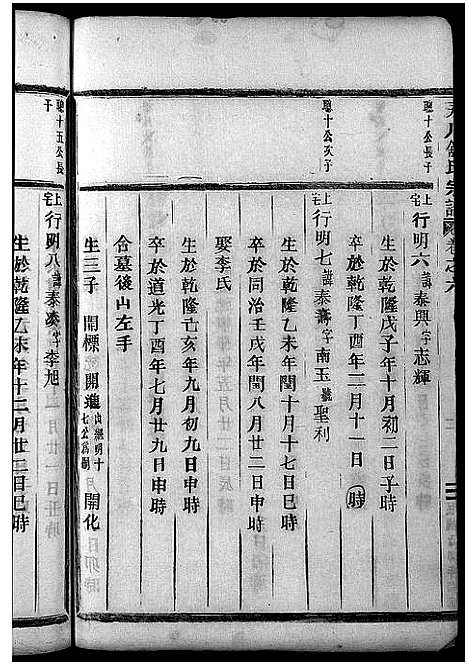 氏宗譜
卷之六
聰十公長子
上宅行明六諱泰興字志輝
生於乾隆戊子年十月初二日子時
卒於乾隆丁酉年二月十一日 時
聰十公次子
上宅行明七諱泰壽字南玉號聖利
生於乾隆乙未年閏十月十七日巳時
卒於同治壬戌年閏八月廿二日申時
娶李氏
生於乾隆亥年九月初九日申時
卒於道光丁酉年七月廿九日申時
合墓後山左手
生三子 開標 開進 出繼明十七公為嗣 開化
聰十五公長子
上宅行明八諱泰 字李旭
生於乾隆乙未年十二月廿一日巳時